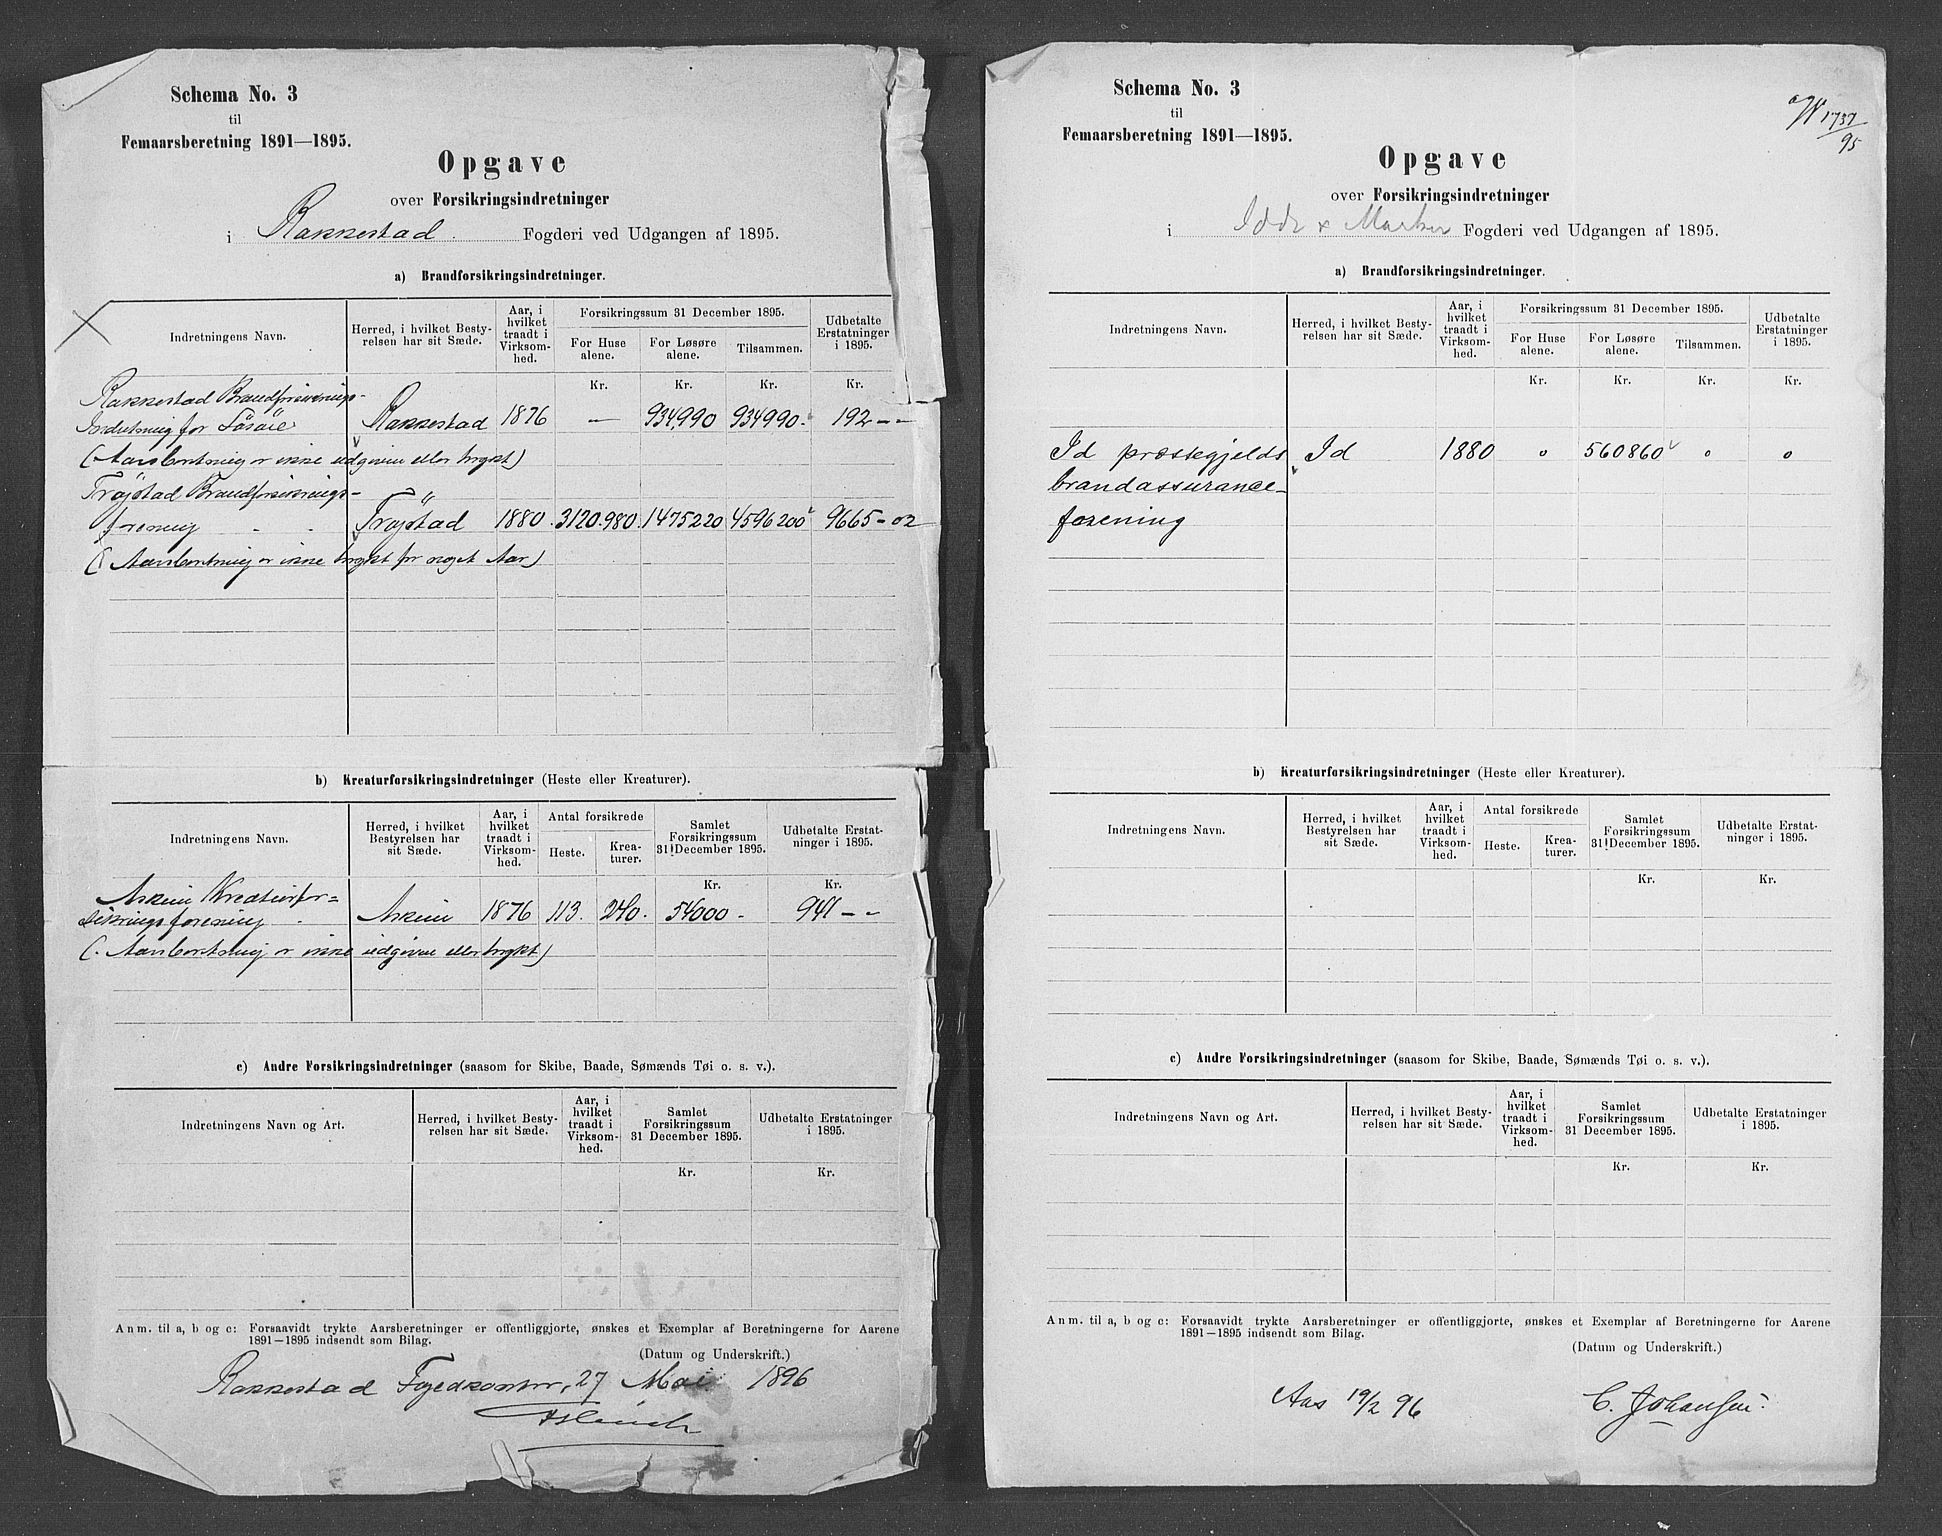 Schema No. 3
til
Femaarsberetning 1891—1895.
Opgave
over Forsikringsindretninger
i Rakkestad Fogderi ved Udgangen af 1895.
a) Brandforsikringsindretninger.
Indretningens Navn.
Herred, i hvilket Besty-
relsen har sit Sæde.
Aar, i
hvilket
traadt i
Virksom-
hed.
Forsikringssum 31 December 1895.
For Huse
alene.
For Løsøre
alene.
Tilsammen.
Udbetalte
Erstatninger
i 1895.
Kr. Kr. Kr. Kr.
Rakkestad Brandforsikrings-
Indretning for Løsøre Rakkestad 1876 — 934,990 934990. 192 - -
(Aarsberetning er ikke udgiven eller trykt)
Trøjstad Brandforsikrings-
forening Trøjstad 1880. 3120.980. 1475220 4596200 9665 - 02
(Aarsberetning er ikke trykt for noget Aar)
b) Kreaturforsikringsindretninger (Heste eller Kreaturer).
Indretningens Navn.
Herred, i hvilket
Bestyrelsen har
sit Sæde.
Aar, i
hvilket
traadt i
Virksom-
hed.
Antal forsikrede
Heste.
Krea-
turer.
Samlet
Forsikringssum
31 December 1895.
Udbetalte Erstat-
ninger i 1895.
Kr. Kr.
Askim Kreaturfor-
sikringsforening Askim 1876 113. 240. 54000 - 941 - -
(Aarsberetning er ikke udgiven eller trykt)
c) Andre Forsikringsindretninger (saasom for Skibe, Baade, Sømænds Tøi o. s. v.).
Indretningens Navn og Art.
Herred, i hvilket Besty-
relsen har sit Sæde.
Aar, i
hvilket
traadt i
Virksom-
hed.
Samlet
Forsikringssum
31 December 1895.
Udbetalte Erstatninger
i 1895.
Kr. Kr.
Anm. til a, b og c: Forsaavidt trykte Aarsberetninger er offentliggjorte, ønskes et Exemplar af Beretningerne for Aarene
1891—1895 indsendt som Bilag.
(Datum og Underskrift.)
Rakkestad Fogedkontor, 27 Mai 1896
Schema No. 3
til
Femaarsberetning 1891—1895.
1737/95
Opgave
over Forsikringsindretninger
i Idde & Marker Fogderi ved Udgangen af 1895.
a) Brandforsikringsindretninger.
Indretningens Navn.
Herred, i hvilket Besty-
relsen har sit Sæde.
Aar, i
hvilket
traadt i
Virksom-
hed.
Forsikringssum 31 December 1895.
For Huse
alene.
For Løsøre
alene.
Tilsammen.
Udbetalte
Erstatninger
i 1895.
Kr. Kr. Kr. Kr.
Id præstegjelds Id 1880 0 560860 0 0
brandassurance-
forening
b) Kreaturforsikringsindretninger (Heste eller Kreaturer).
Indretningens Navn.
Herred, i hvilket
Bestyrelsen har
sit Sæde.
Aar, i
hvilket
traadt i
Virksom-
hed.
Antal forsikrede
Heste.
Krea-
turer.
Samlet
Forsikringssum
31 December 1895.
Udbetalte Erstat-
ninger i 1895.
Kr. Kr.
c) Andre Forsikringsindretninger (saasom for Skibe, Baade, Sømænds Tøi o. s. v.).
Indretningens Navn og Art.
Herred, i hvilket Besty-
relsen har sit Sæde.
Aar, i
hvilket
traadt i
Virksom-
hed.
Samlet
Forsikringssum
31 December 1895.
Udbetalte Erstatninger
i 1895.
Kr. Kr.
Anm. til a, b og c: Forsaavidt trykte Aarsberetninger er offentliggjorte, ønskes et Exemplar af Beretningerne for Aarene
1891—1895 indsendt som Bilag.
(Datum og Underskrift.)
Aas 19/2 96 C. Johansen.